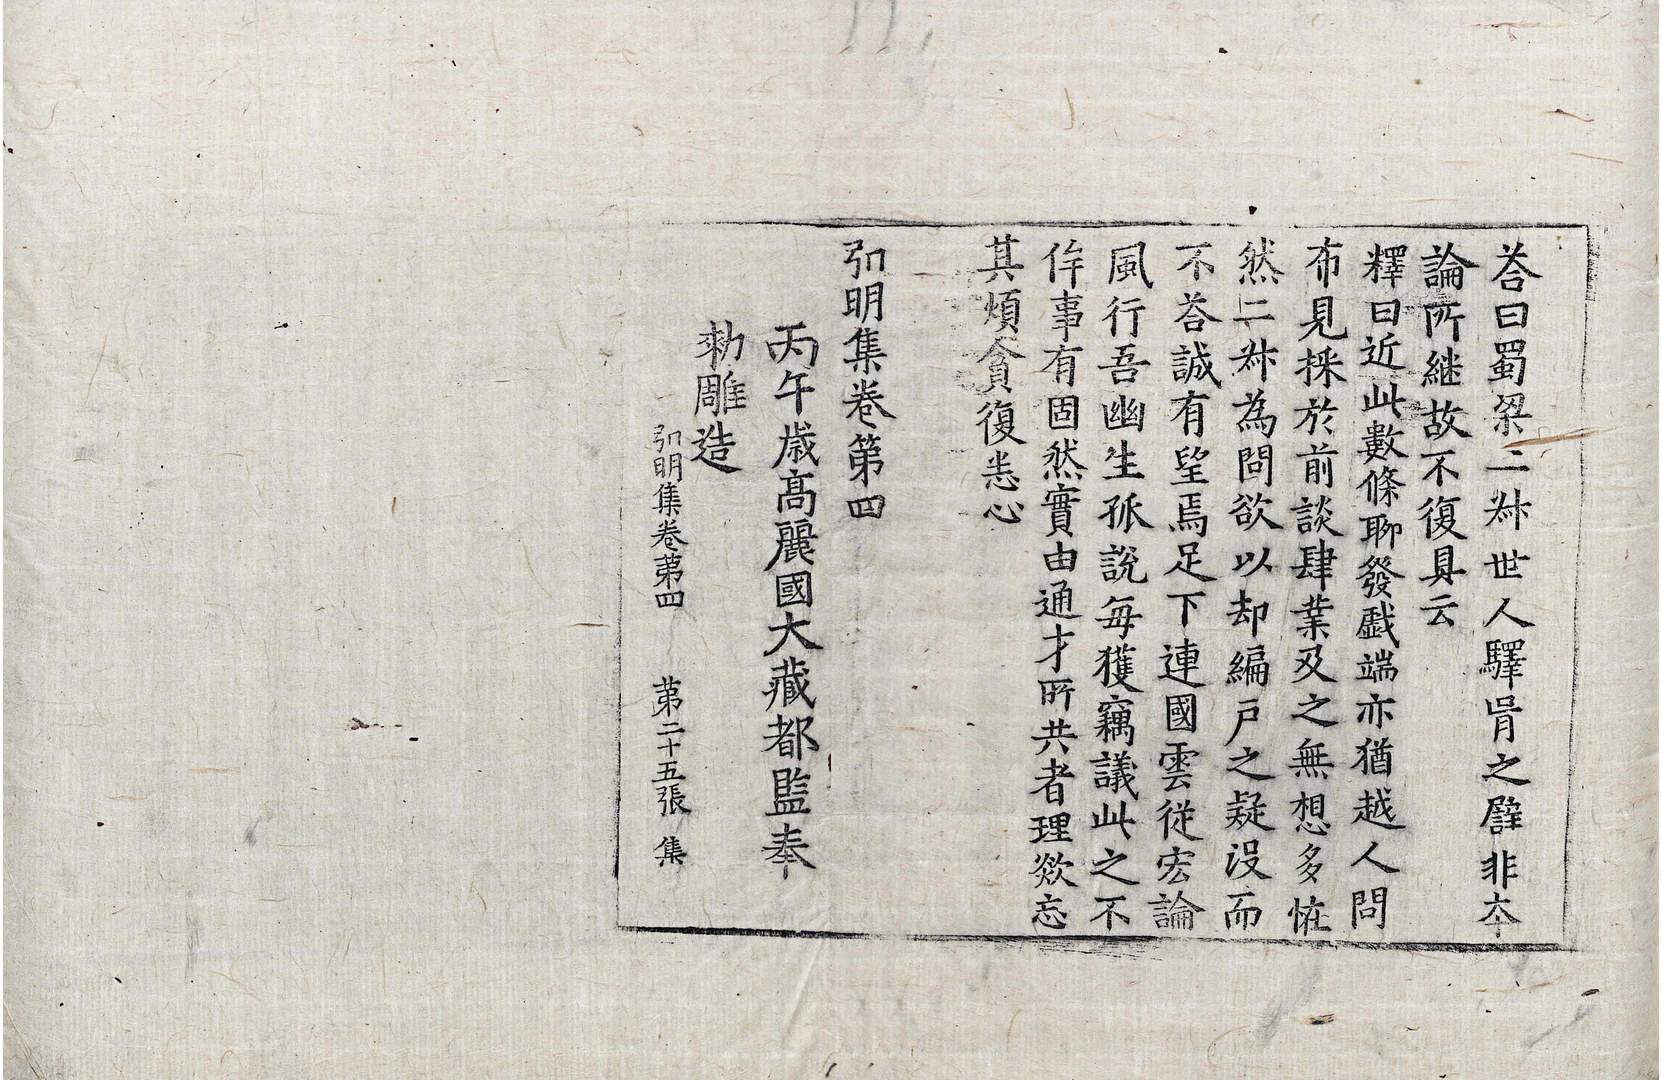 荅曰蜀梁二叔世人驛胥之譬非本
論所継故不復具云
釋曰近此數條聊發戱端亦猶越人問
布見採於前談肆業及之無想多恠
然二叔為問欲以却編戶之疑沒而
不荅誠有望焉足下連國雲従宏論
風行吾幽生孤說每獲竊議此之不
侔事有固然實由通才所共者理欻忘
其煩貪復悉心
弘明集卷第四
丙午歳高麗國大藏都監奉
勑雕造
弘明集卷第四 第二十五張 集